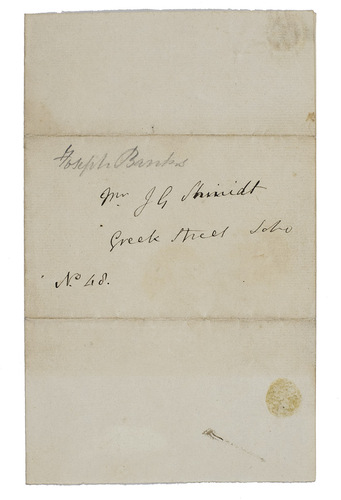 Joseph Banks
Mr J G Shmidt
Greek Street Soho
No 48.